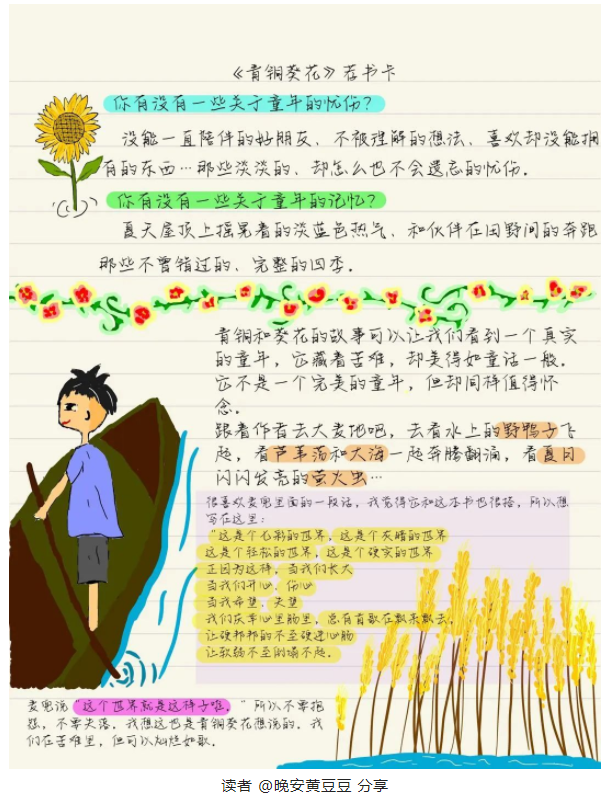 《青铜葵花》荐书卡
你有没有一些关于童年的忧伤？
没能一直陪伴的好朋友、不被理解的想法、喜欢却没能拥
有的东西…那些淡淡的、却怎么也不会遗忘的忧伤.
你有没有一些关于童年的记忆？
夏天屋顶上摇晃着的淡蓝色热气、和伙伴在田野间的奔跑
那些不曾错过的、完整的四季.
青铜和葵花的故事可以让我们看到一个真实
的童年，它藏着苦难，却美得如童话一般.
它不是一个完美的童年，但却同样值得怀
念.
跟着作者去大麦地吧，去看水上的野鸭子飞
起，看芦苇荡和大海一起奔腾翻涌，看夏日
闪闪发亮的萤火虫…
很喜欢麦兜里面的一段话，我觉得它和这本书也很搭，所以想
写在这里：
“这是个七彩的世界，这是个灰暗的世界
这是个轻松的世界，这是个硬实的世界
正因为这样，当我们长大
当我们开心、伤心
当我希望、失望
我们庆幸心里肠里，总有首歌在飘来飘去，
让硬邦邦的不至硬进心肠
让软弱不至倒塌不起.
麦兜说“这个世界就是这样子啦，”所以不要抱
怨，不要失落.我想这也是青铜葵花想说的.我
们在苦难里，但可以灿烂如歌.
读者 @晚安黄豆豆 分享